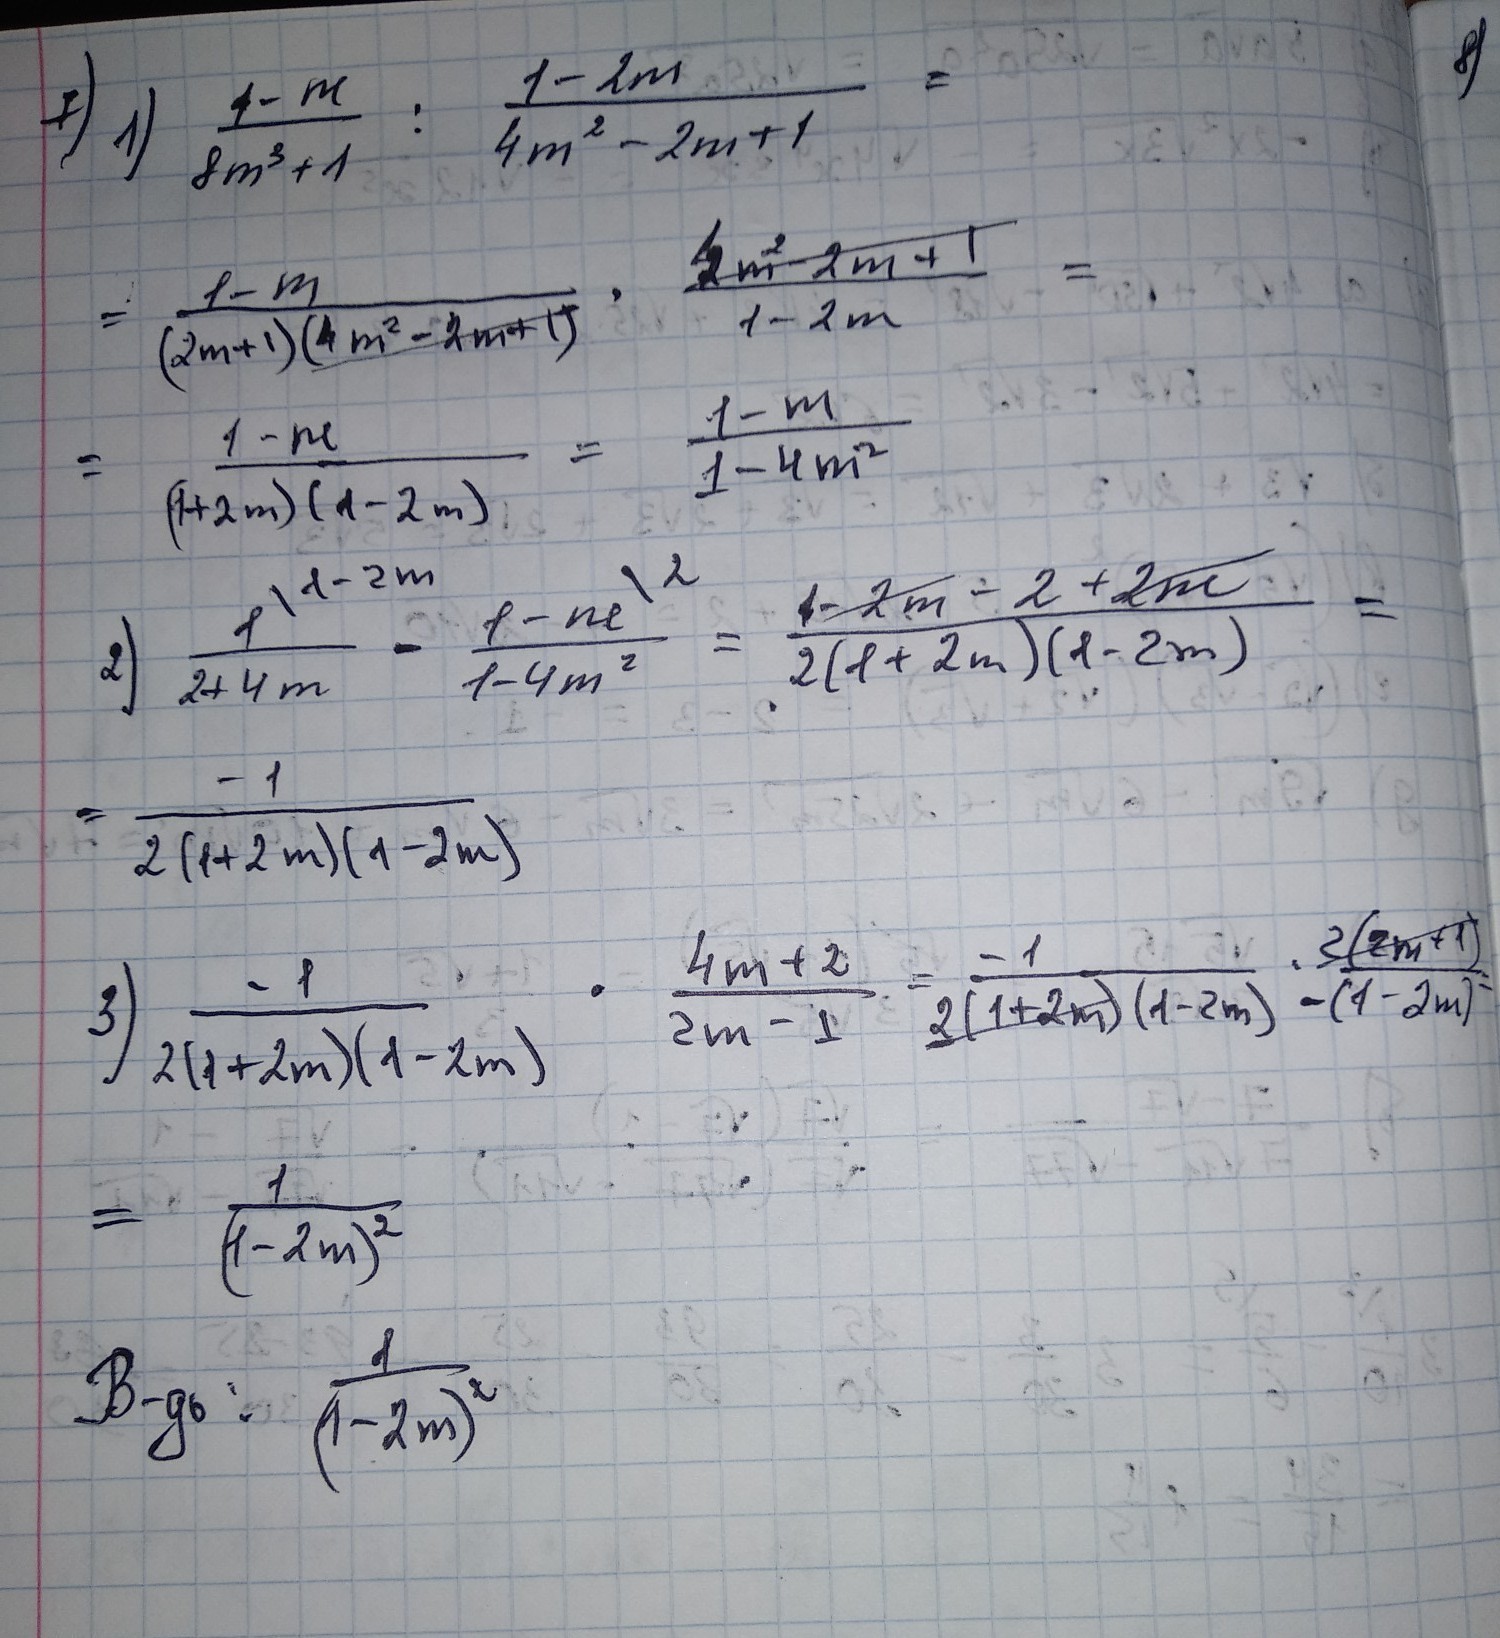 7) 1) (1-m)/(8m³+1) : (1-2m)/(4m²-2m+1) =
= (1-m)/((2m+1)(4m²-2m+1)) · (4m²-2m+1)/(1-2m) =
= (1-m)/((1+2m)(1-2m)) = (1-m)/(1-4m²)
2) 1\1-2m/(2+4m) - (1-m)\2/(1-4m²) = (1-2m-2+2m)/(2(1+2m)(1-2m)) =
= -1/(2(1+2m)(1-2m))
3) -1/(2(1+2m)(1-2m)) · (4m+2)/(2m-1) = -1/(2(1+2m)(1-2m)) · 2(2m+1)/(-(1-2m)) =
= 1/(1-2m)²
В-дь: 1/(1-2m)²
8)